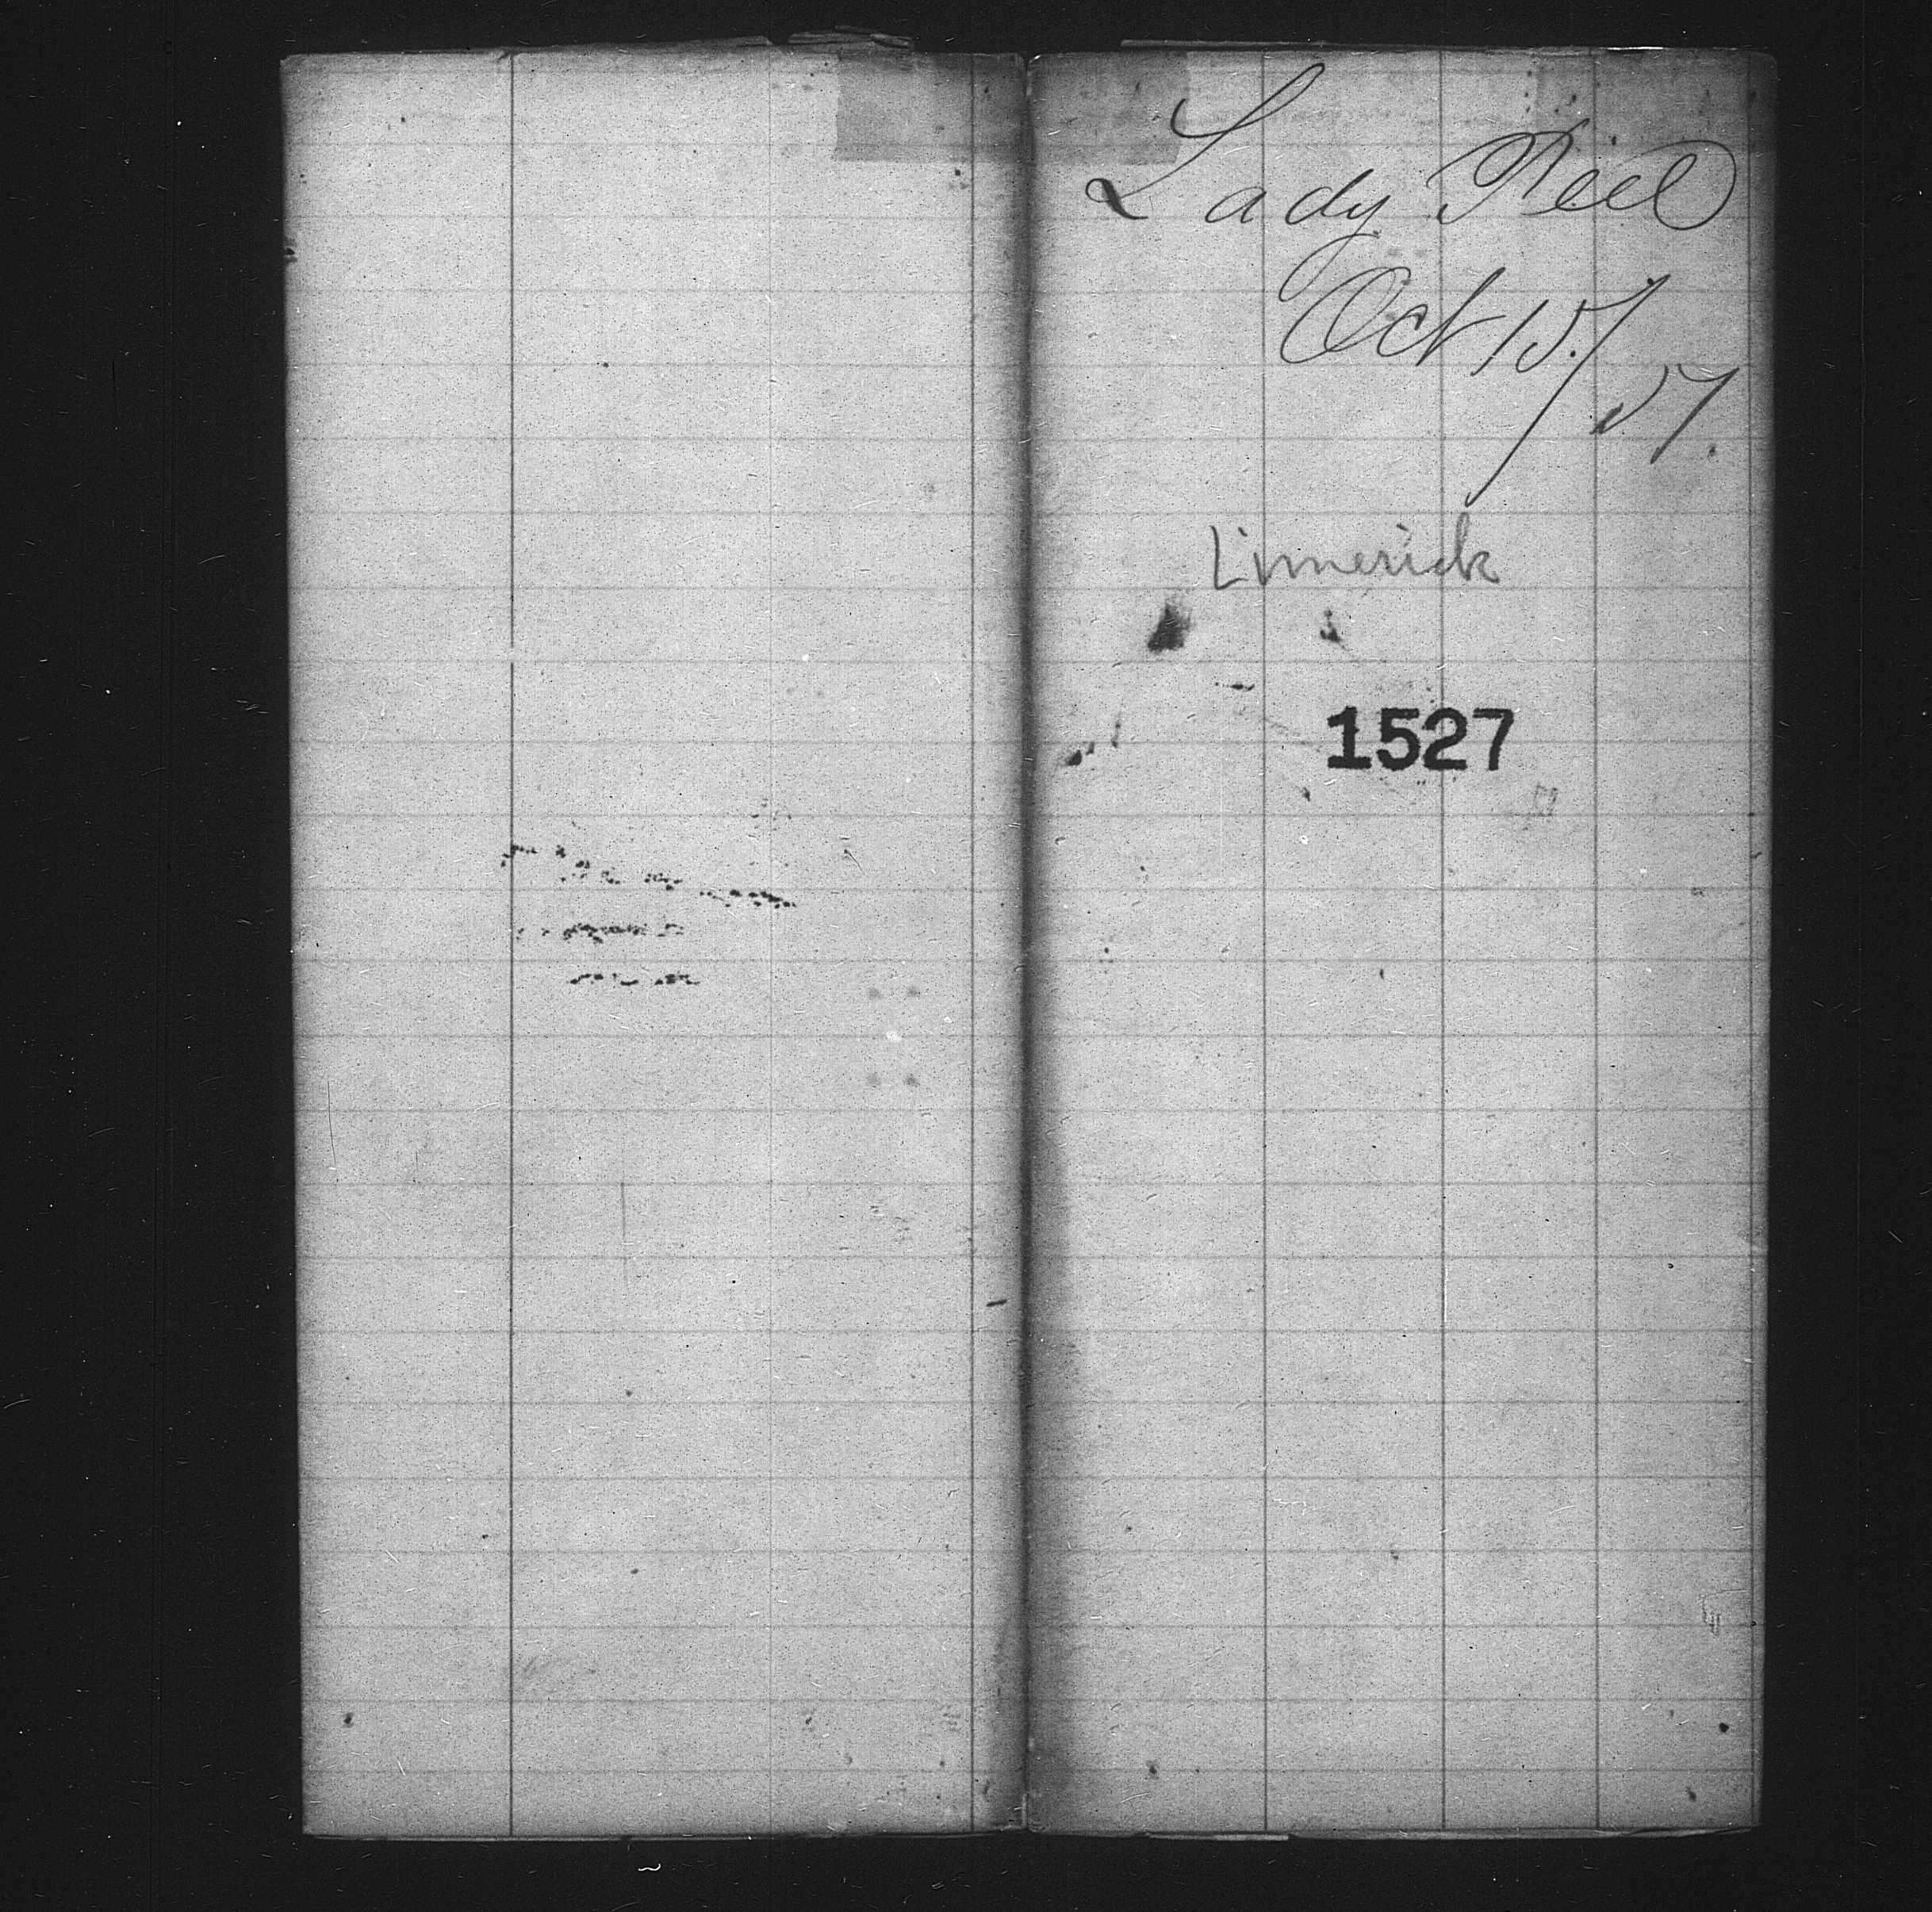 Lady Peel
Oct 15/
57.
Limerick
1527